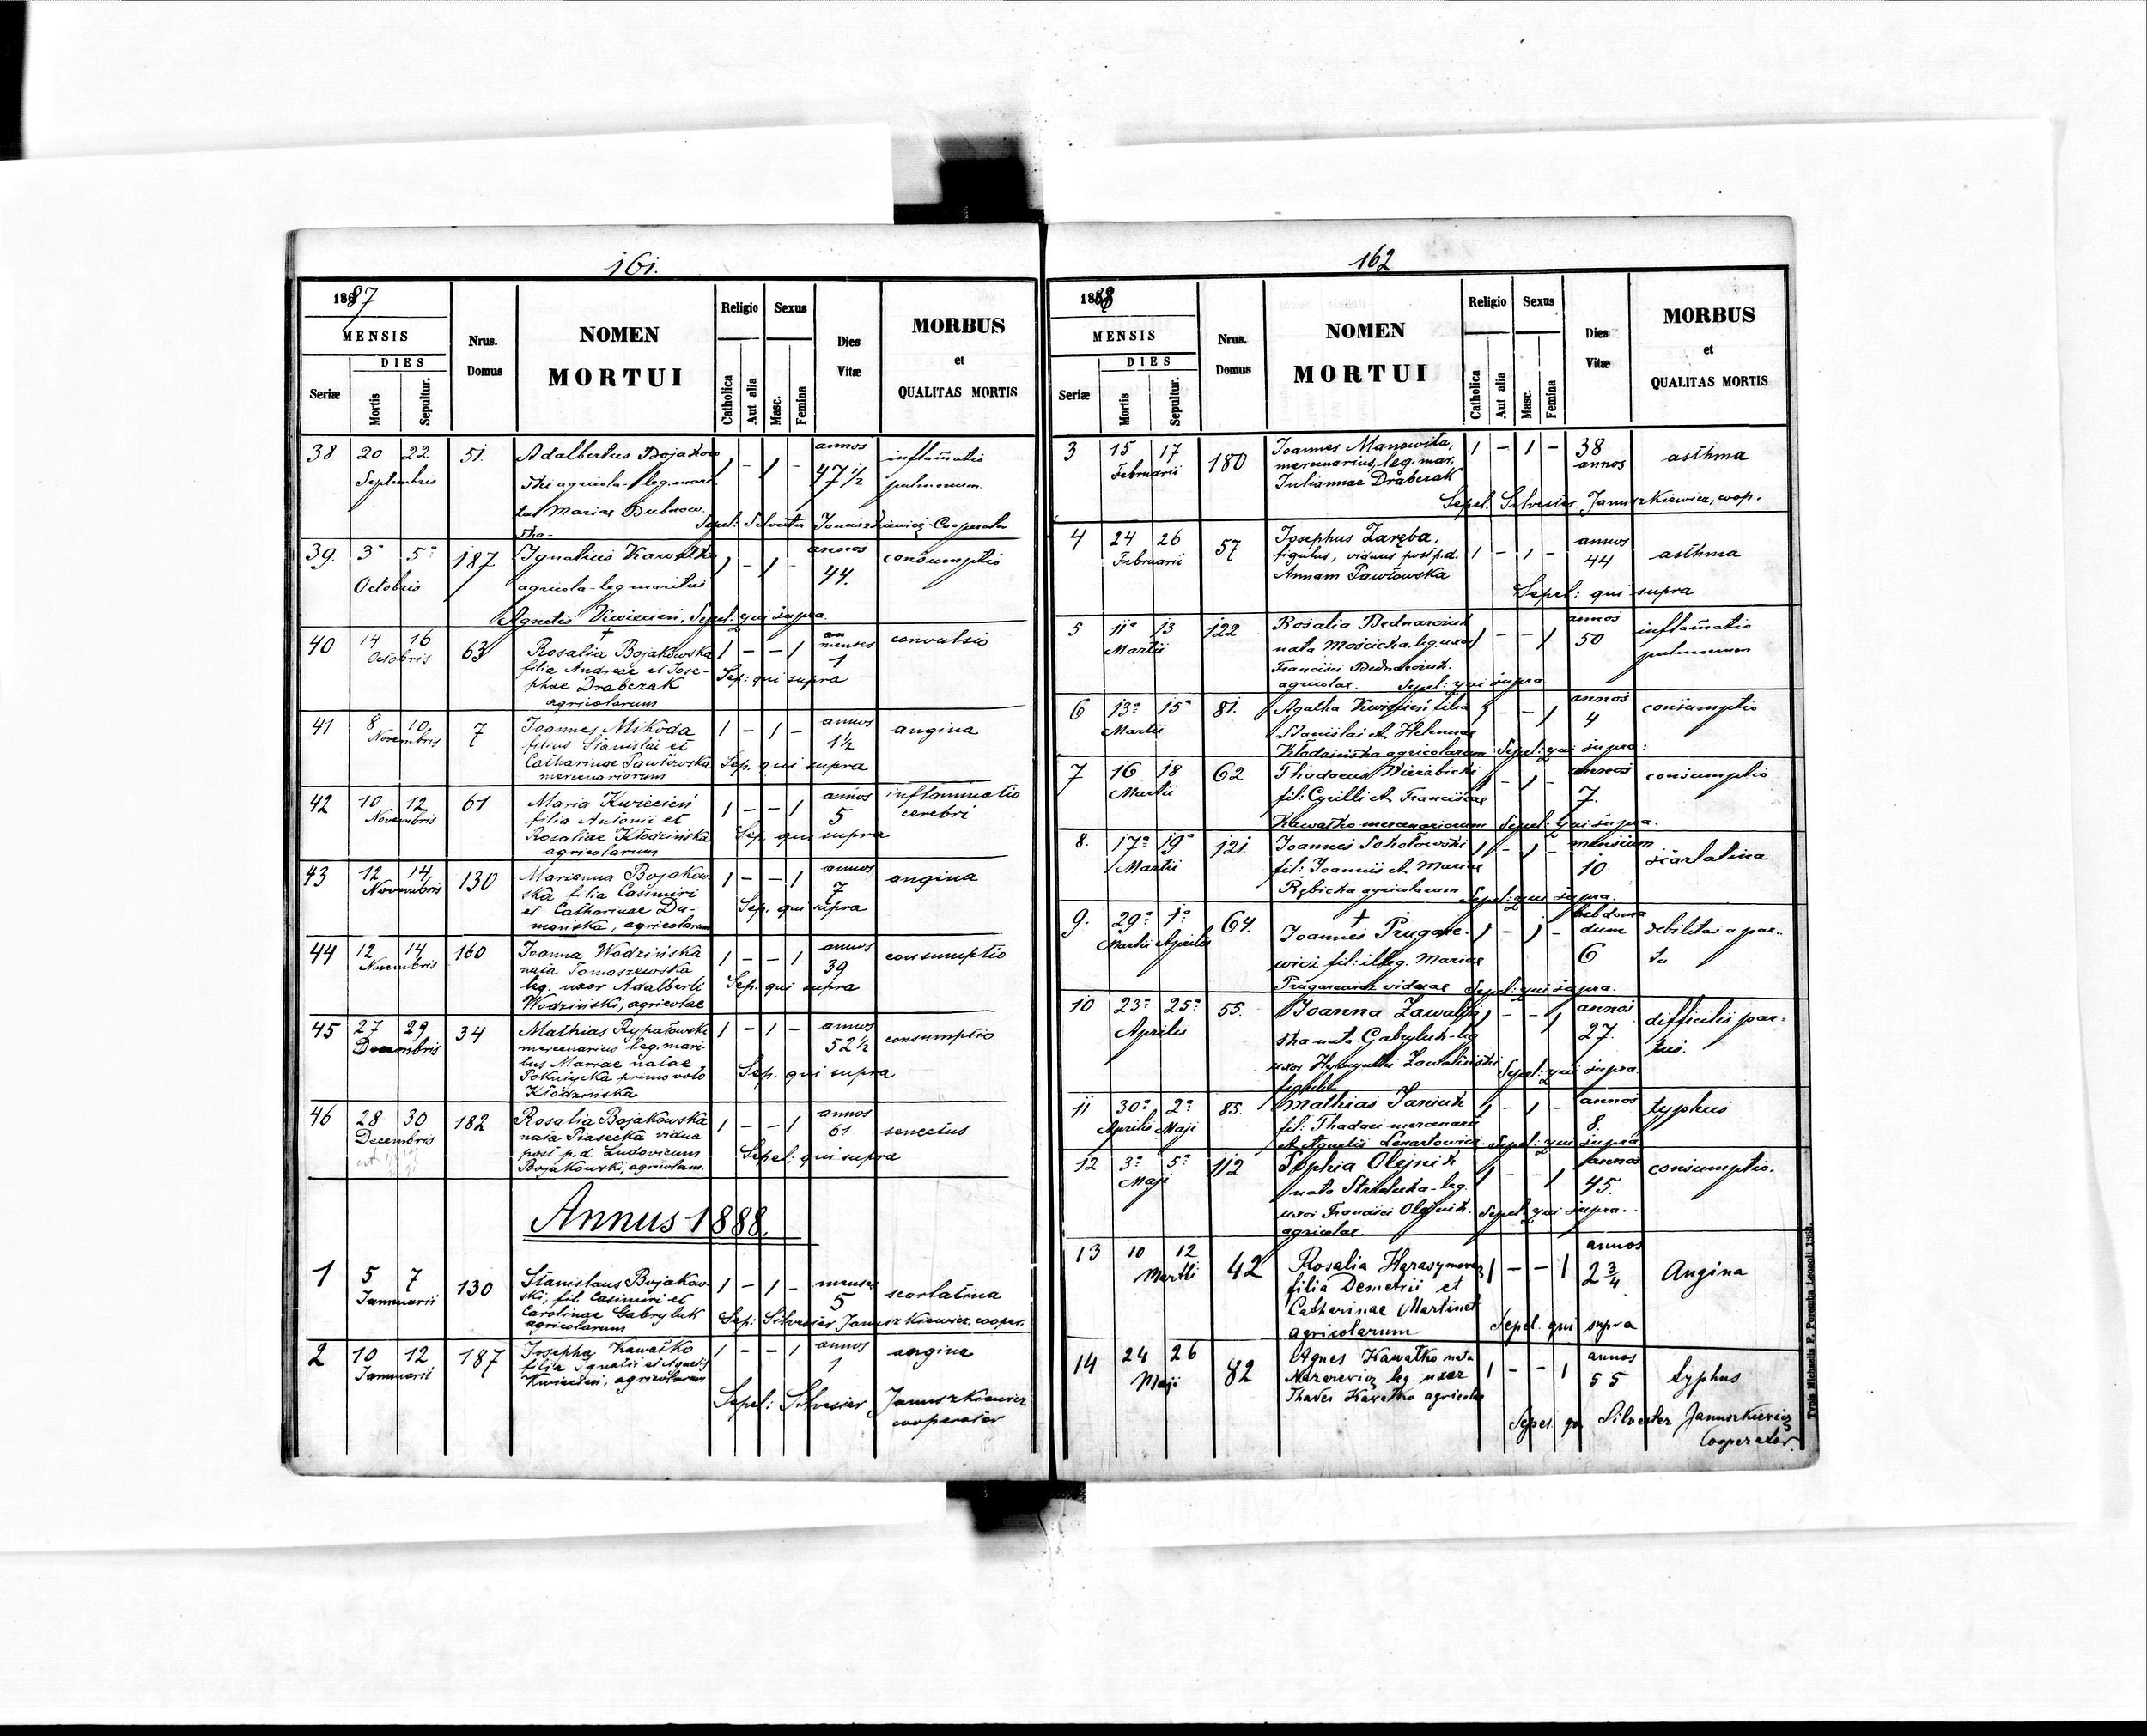 161.
1887
MENSIS
DIES
Seriæ
Mortis
Sepultur.
Nrus.
Domus
NOMEN
MORTUI
Religio
Catholica
Aut alia
Sexus
Masc.
Femina
Dies
Vitæ
MORBUS
et
QUALITAS MORTIS
38 20 22 51. Adalbertus Bojakow 1 - 1 - annos inflam̄atio
Septembris ski agricola leg. mari 47 1/2 pulmonum
tus Mariae Dubnow
ska- Sepel: Silvester Januszkiewicz Cooperator
39. 3a 5a 187 Ignatius Kawałko 1 - 1 - annos consumptio
Octobris agricola leg maritus 44.
Agnetis Kwiecień. Sepel: qui supra.
40 14 16 63 Rosalia Bojakowska 1 - - 1 menses convulsio
Octobris filia Andreae et Jose- 1
phae Drabczak Sep: qui supra
agricolarum
41 8 10 7 Joannes Mikoda 1 - 1 - annos angina
Novembris filius Stanislai et 1½
Catharinae Pawłowska Sep. qui supra
mercenariorum
42 10 12 61 Maria Kwiecień 1 - - 1 annos inflammatio
Novembris filia Antonii et 5 cerebri
Rosaliae Kłodzińska Sep. qui supra
agricolarum
43 12 14 130 Marianna Bojakow- 1 - - 1 annos angina
Novembris ska filia Casimiri 7
et Catharinae Du- Sep. qui supra
mańska, agricolarum
44 12 14 160 Joanna Wodzińska 1 - - 1 annos consumptio
Novembris nata Tomaszewska 39
leg. uxor Adalberti Sep. qui supra
Wodziński, agricolae
45 27 29 34 Mathias Rypałowski 1 - 1 - annos consumptio
Decembris mercenarius leg. mari- 52½
tus Mariae natae Sep. qui supra
primo voto
Kłodzińska
46 28 30 182 Rosalia Bojakowska 1 - - 1 annos senectus
Decembris nata Piasecka vidua 61
post p.d. Ludovicum Sepel: qui supra
Bojakowski, agricolam.
Annus 1888.
1 5 7 130 Stanislaus Bojakow- 1 - 1 - menses scarlatina
Januarii ski, fil. Casimiri et 5
Carolinae Gabryluk Sep: Silvester Januszkiewicz cooper.
agricolarum
2 10 12 187 Josepha Kawałko 1 - - 1 annos angina
Januarii filia Ignatii et Agnetis 1
Kwiecień, agricolarum
Sepel: Silvester Januszkiewicz
cooperator
162
1888
MENSIS
DIES
Seriæ
Mortis
Sepultur.
Nrus.
Domus
NOMEN
MORTUI
Religio
Catholica
Aut alia
Sexus
Masc.
Femina
Dies
Vitæ
MORBUS
et
QUALITAS MORTIS
3 15 17 180 Joannes Manowita, 1 - 1 - 38 asthma
Februarii mercenarius, leg. mar. annos
Juliannae Drabczak
Sepel. Silvester Januszkiewicz, coop.
4 24 26 57 Josephus Zaręba, 1 - 1 - annos asthma
Februarii figulus, viduus post p.d. 44
Annam Pawłowska
Sepel: qui supra
5 11a 13 122 Rosalia Bednarczuk 1 - - 1 annos inflam̄atio
Martii nata Mościcka, leg. uxor 50 pulmonum
Francisci Bednarczuk.
agricolae. Sepel: qui supra
6 13a 15a 81. Agatha Kwiecień filia 1 - - 1 annos consumptio
Martii Stanislai et Helenae 4
Kłodzińska agricolarum Sepel: qui supra:
7 16 18 62 Thadaeus Wierzbicki 1 - 1 - annos consumptio
Martii fil: Cyrilli et Franciscae 7.
Kawałko mercenariorum Sepel: qui supra.
8. 17a 19a 121. Joannes Sokołowski 1 - 1 - mensium scarlatina
Martii fil: Joannis et Mariae 10
Rębicka agricolarum Sepel: qui supra.
9. 29a 1a 64. Joannes Prugare- 1 - 1 - hebdoma debilitas a par-
Martii Aprilis wicz fil: illeg. Mariae dum tu
Prugarewicz viduae 6 Sepel: qui supra.
10 23a 25a 55. Joanna Zawaliń 1 - - 1 annos difficilis par-
Aprilis ska nata Gabryluk leg 27. tus.
uxor Hyacynthi Zawaliński Sepel: qui supra.
figuli
11 30a 2a 85. Mathias Janiuk 1 - 1 - annos typhus
Aprilis Maji fil: Thadaei mercenarii 8.
et Agnetis Lenartowicz. Sepel: qui supra
12 3a 5a 112 Sophia Olejnik 1 - - 1 annos consumptio.
Maji nata leg. 45.
uxor Francisci Olejnik. Sepel: qui supra.
agricolae
13 10 12 42 Rosalia Harasymowicz 1 - - 1 annos Angina
Martii filia Demetrii et 2 3/4
Catharinae Martinet
agricolarum Sepel. qui supra
14 24 26 82 Agnes Kawałko nata 1 - - 1 annos typhus
Maji leg. uxor 55
Thadei Kawałko agricolae
Sepel. Silvester Januszkiewicz
Cooperator.
Typis Michaelis F. Poremba Leopoli